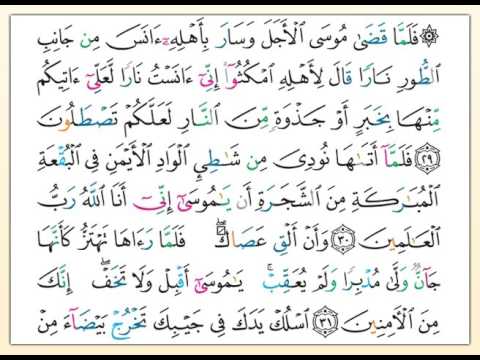 ۞ فَلَمَّا قَضَىٰ مُوسَى الْأَجَلَ وَسَارَ بِأَهْلِهِۦٓ ءَانَسَ مِن جَانِبِ
الطُّورِ نَارًا قَالَ لِأَهْلِهِ امْكُثُوٓا۟ إِنِّىٓ ءَانَسْتُ نَارًا لَّعَلِّىٓ ءَاتِيكُم
مِّنْهَا بِخَبَرٍ أَوْ جَذْوَةٍ مِّنَ النَّارِ لَعَلَّكُمْ تَصْطَلُونَ
﴿٢٩﴾ فَلَمَّآ أَتَىٰهَا نُودِىَ مِن شَٰطِئِ الْوَادِ الْأَيْمَنِ فِى الْبُقْعَةِ
الْمُبَٰرَكَةِ مِنَ الشَّجَرَةِ أَن يَٰمُوسَىٰٓ إِنِّىٓ أَنَا اللَّهُ رَبُّ
الْعَٰلَمِينَ ﴿٣٠﴾ وَأَنْ أَلْقِ عَصَاكَ ۖ فَلَمَّا رَءَاهَا تَهْتَزُّ كَأَنَّهَا
جَآنٌّ وَلَّىٰ مُدْبِرًا وَلَمْ يُعَقِّبْ ۚ يَٰمُوسَىٰٓ أَقْبِلْ وَلَا تَخَفْ ۖ إِنَّكَ
مِنَ الْءَامِنِينَ ﴿٣١﴾ اسْلُكْ يَدَكَ فِى جَيْبِكَ تَخْرُجْ بَيْضَآءَ مِنْ